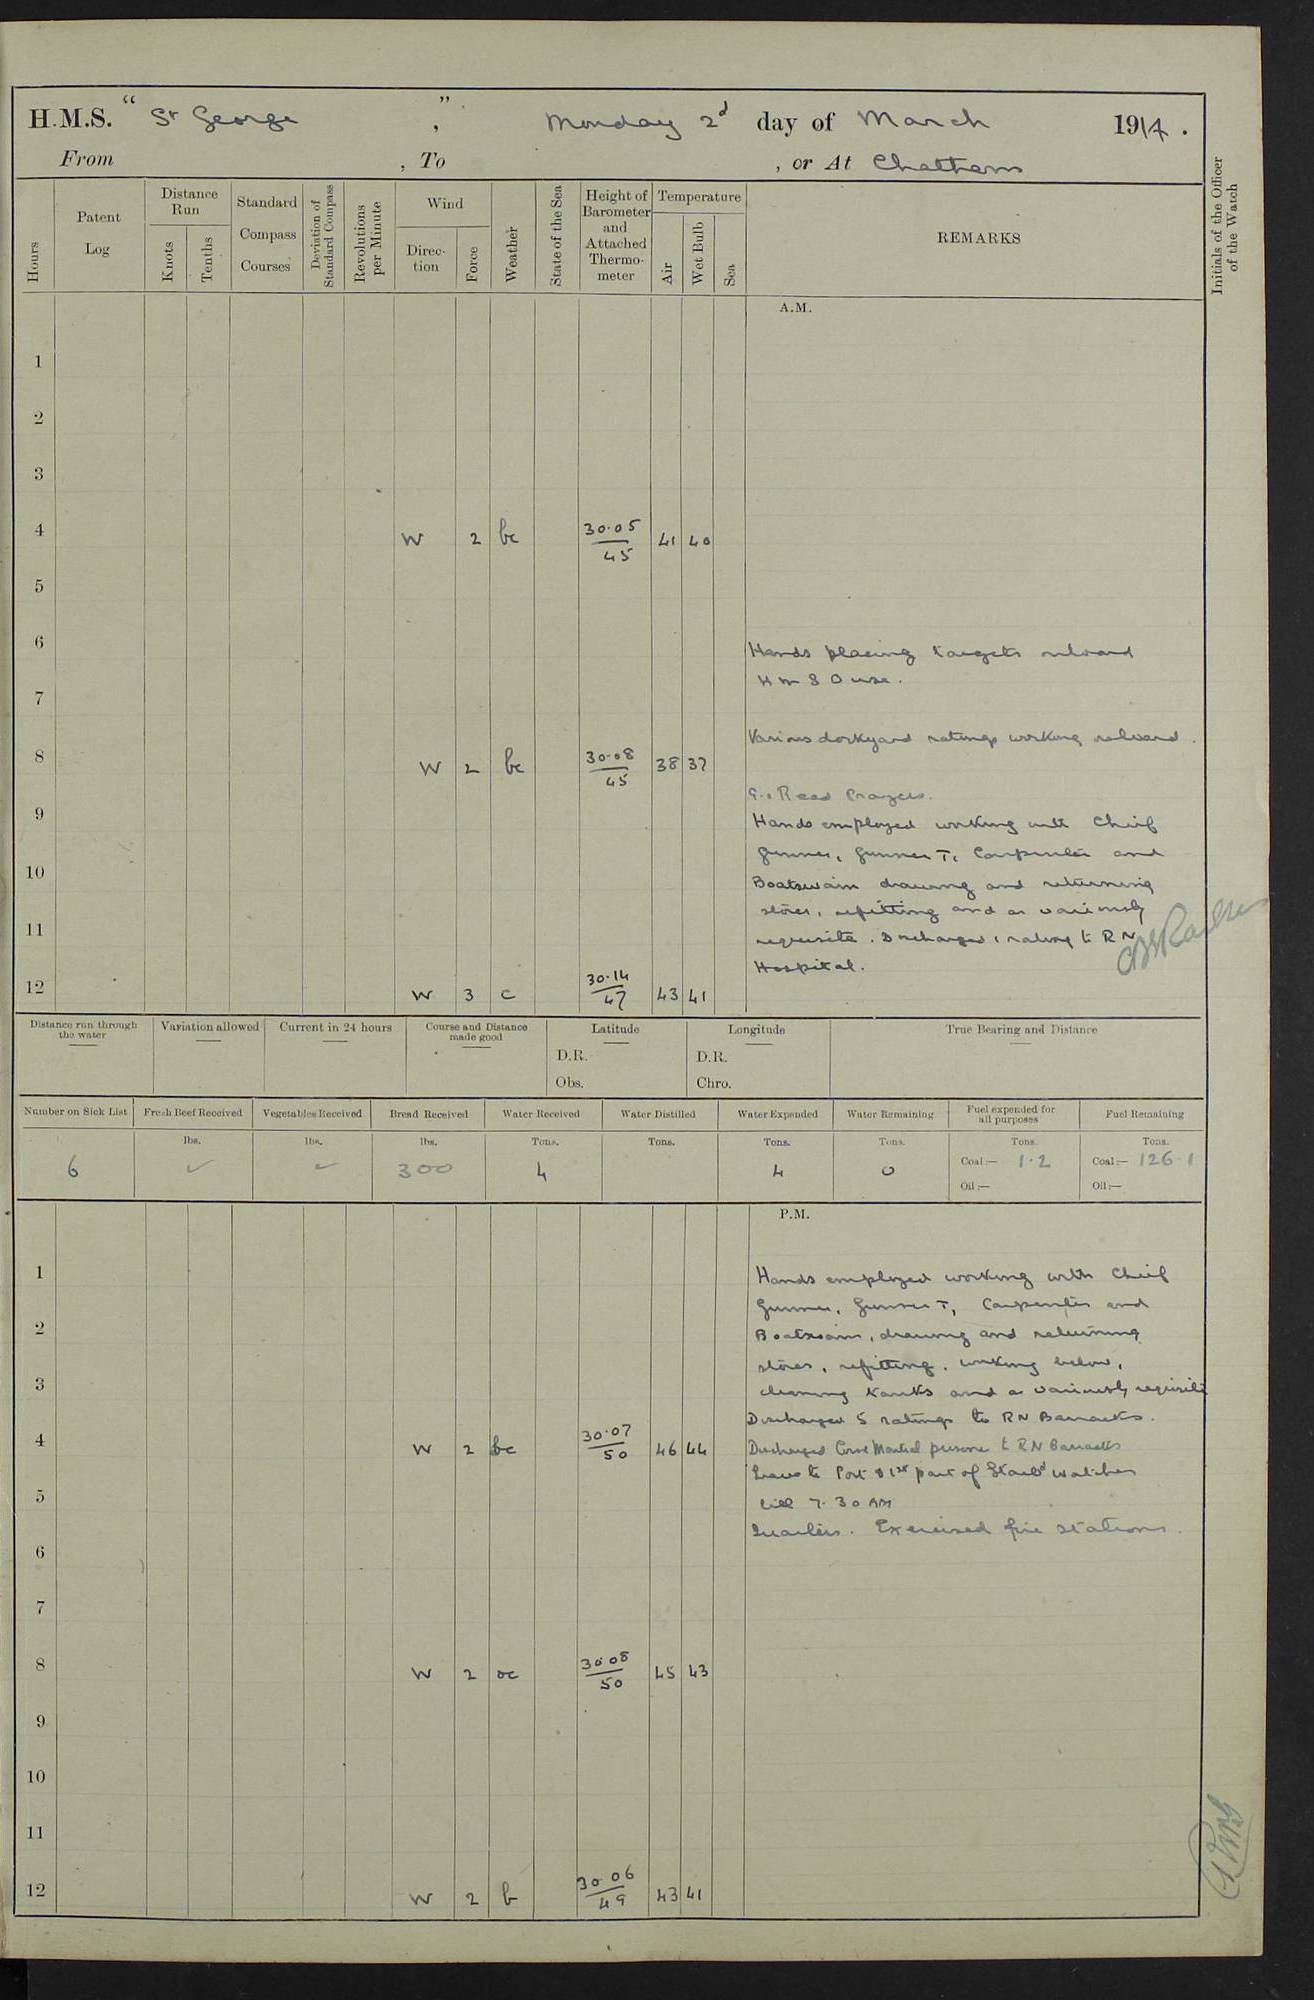 H.M.S. "St George", Monday 2d day of March 1914.
From , To , or At Chatham
Hours
Patent Log
Distance Run
Knots
Tenths
Standard Compass Courses
Deviation of Standard Compass
Revolutions per Minute
Wind
Direction
Force
Weather
State of the Sea
Height of Barometer and Attached Thermometer
Temperature
Air
Wet Bulb
Sea
REMARKS
Initials of the Officer of the Watch
A.M.
1
2
3
4 W 2 bc 30.05 45 41 40
5
6
Hands placing targets onboard
H M S Ouse.
7
Various dockyard ratings working onboard.
8 W 2 bc 30.08 45 38 37
9.0 Read Prayers.
9
Hands employed working with Chief
Gunner, Gunner T, Carpenter and
10
Boatswain drawing and returning
stores, refitting and as variously
11
requisite. Discharged 1 rating to R N
Hospital.
12 W 3 c 30.14 47 43 41
Distance run through the water
Variation allowed
Current in 24 hours
Course and Distance made good
Latitude
D.R.
Obs.
Longitude
D.R.
Chro.
True Bearing and Distance
Number on Sick List
Fresh Beef Received
Vegetables Received
Bread Received
Water Received
Water Distilled
Water Expended
Water Remaining
Fuel expended for all purposes
Fuel Remaining
lbs. lbs. lbs. Tons. Tons. Tons. Tons. Tons. Tons.
6 ✓ ✓ 300 4 4 0 Coal:— 1.2 Coal:— 126.1
Oil:— Oil:—
P.M.
1
Hands employed working with Chief
Gunner, Gunner T, Carpenter and
2
Boatswain, drawing and returning
stores, refitting, working below,
3
cleaning tanks and as variously requisite
Discharged 5 ratings to RN Barracks.
4 W 2 bc 30.07 50 46 44
Discharged Court Martial prisoner to R N Barracks
Leave to Port & 1st part of Starbd watches
5
till 7.30 AM
Quarters. Exercised fire stations.
6
7
8 W 2 oc 30.08 50 45 43
9
10
11
12 W 2 b 30.06 49 43 41